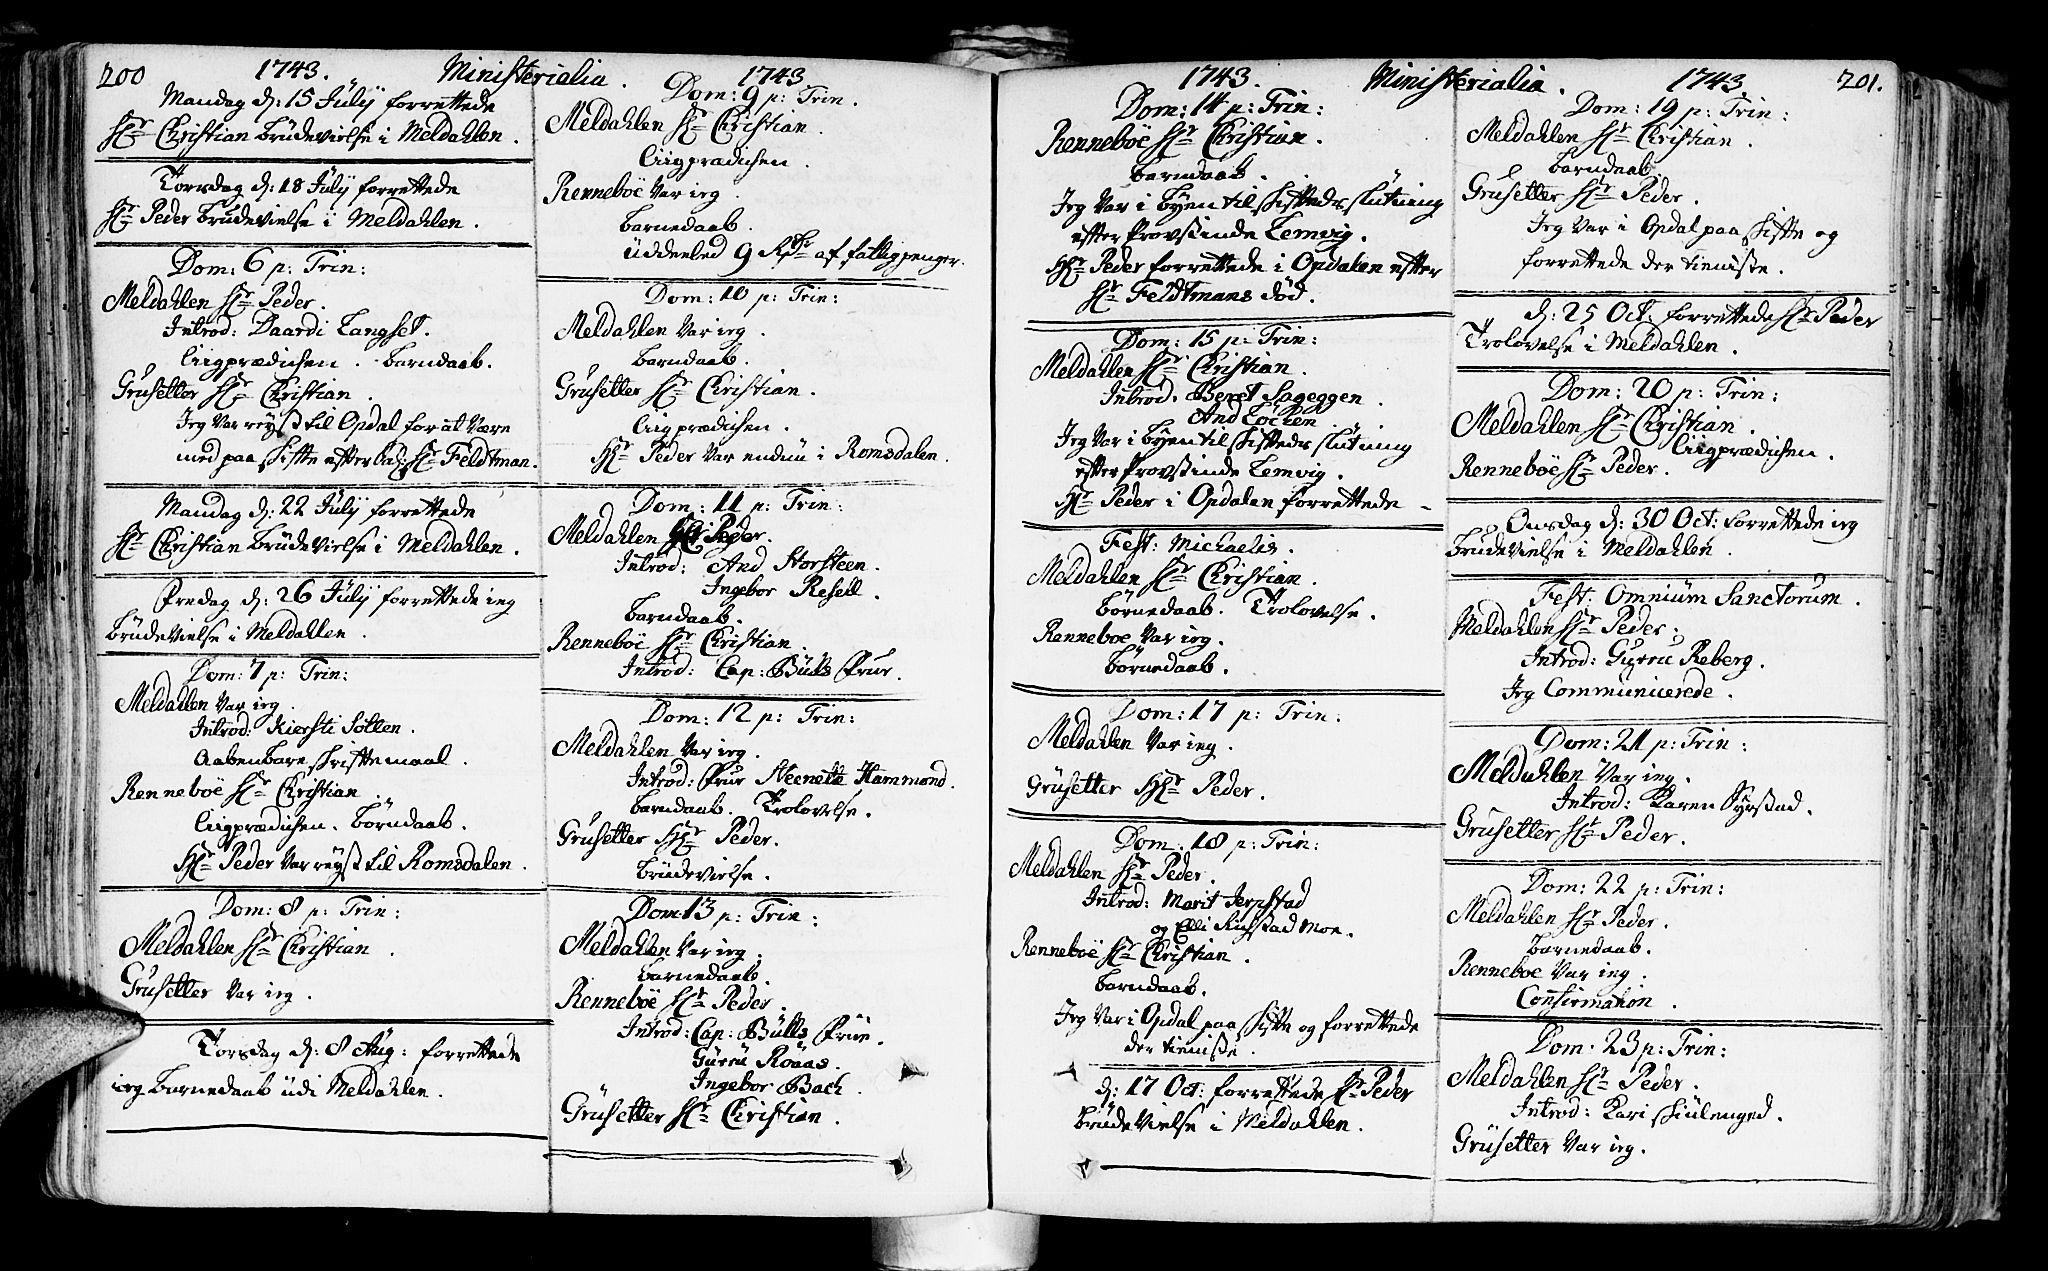 200 1743. Ministerialia. 1743
Mandag d: 15 Julÿ forrettede
Hr Christian brüdevielse i Meldahlen.
Torsdag d: 18 Julÿ forrettede
Hr Peder brüdevielse i Meldahlen.
Dom: 6 p: Trin:
Meldahlen Hr Peder.
Introd: Daardi Langset.
Liigprædichen. barndaab.
Grüsetter Hr Christian.
Jeg var reÿst til Opdal for at være
med paa skifte efter Sal: Hr Feldtman.
Mandag d: 22 Julÿ forrettede
Hr Christian brüdevielse i Meldahlen.
Fredag d: 26 Julÿ forrettede ieg
brüdevielse i Meldahlen.
Dom: 7 p: Trin:
Meldahlen var ieg.
Introd: Kiersti Solten.
Aabenbare skriftemaal.
Renneböe Hr Christian.
Liigprædichen. börndaab.
Hr Peder var reÿst til Romsdalen.
Dom: 8 p: Trin:
Meldahlen Hr Christian.
Grüsetter var ieg.
Torsdag d: 8 Aug: forrettede
ieg barnedaab üdi Meldahlen.
Dom: 9 p: Trin.
Meldahlen Hr Christian.
Liigprædichen.
Renneböe var ieg.
barnedaab.
Uddeeled 9 Rdr af fattigpenger.
Dom: 10 p: Trin:
Meldahlen var ieg.
barndaab.
Grüsetter Hr Christian.
Liigprædichen.
Hr Peder var endnu i Romsdalen.
Dom: 11 p: Trin:
Meldahlen Hr Peder.
Introd: And Storsteen.
Ingebor Resell.
barndaab.
Renneböe Hr Christian.
Introd: Cap: Bülls Frue.
Dom: 12 p: Trin:
Meldahlen var ieg.
Introd: Frue Neeneta Hammond.
barndaab. Trolovelse.
Grüsetter Hr Peder.
brüdevielse.
Dom: 13 p: Trin:
Meldahlen var ieg.
barnedaab.
Renneböe Hr Peder.
Introd: Cap: Bülls Früe.
Gürrü Röaas.
Ingebor Bach.
Grüsetter Hr Christian.
1743. Ministerialia. 1743 201.
Dom: 14 p: Trin:
Renneböe Hr Christian.
barndaab.
Jeg var i byen til skiftedes slutning
efter Provstinde Lemvig.
Hr Peder forrettede i Opdalen efter
Hr Feldtmans död.
Dom: 15 p: Trin:
Meldahlen Hr Christian.
Introd: Beret Sageggen.
And Löchen.
Jeg var i byen til skiftedes slütning
efter Provstinde Lemvig.
Hr Peder i Opdalen forrettede –
Fest: Michaelis.
Meldahlen Hr Christian.
börnedaab. Trolovelse.
Renneboe var ieg.
börnedaab.
Dom: 17 p: Trin.
Meldahlen var ieg.
Grüsetter Hr Peder.
Dom: 18 p: Trin:
Meldahlen Hr Peder.
Introd: Marit Jerpstad
og Elli Rugstad moe.
Renneböe Hr Christian.
barndaab.
Jeg var i Opdal paa skifte og forrettede
der tieniste.
d: 17 Oct: forrettede Hr Peder
brüdevielse i Meldahlen.
Dom: 19 p: Trin:
Meldahlen Hr Christian.
barndaab.
Grüsetter Hr Peder.
Jeg var i Opdal paa skifte og
forrettede der tieniste.
d: 25 Oct: forrettede Hr Peder
Trolovelse i Meldahlen.
Dom: 20 p: Trin:
Meldahlen Hr Christian.
Liigprædichen.
Renneböe Hr Peder.
Onsdag d: 30 Oct: forrettede ieg
brüdevielse i Meldahlen.
Fest: Omnium Sanctorum.
Meldahlen Hr Peder.
Introd: Guru Reberg.
Jeg Communicerede.
Dom: 21 p: Trin:
Meldahlen var ieg.
Introd: Karen Syrstad.
Grüsetter Hr Peder.
Dom: 22 p: Trin:
Meldahlen Hr Peder.
barnedaab.
Renneboe var ieg.
Confirmation.
Dom: 23 p: Trin:
Meldahlen Hr Peder.
Introd: Kari Skiulenged.
Grüsetter var ieg.